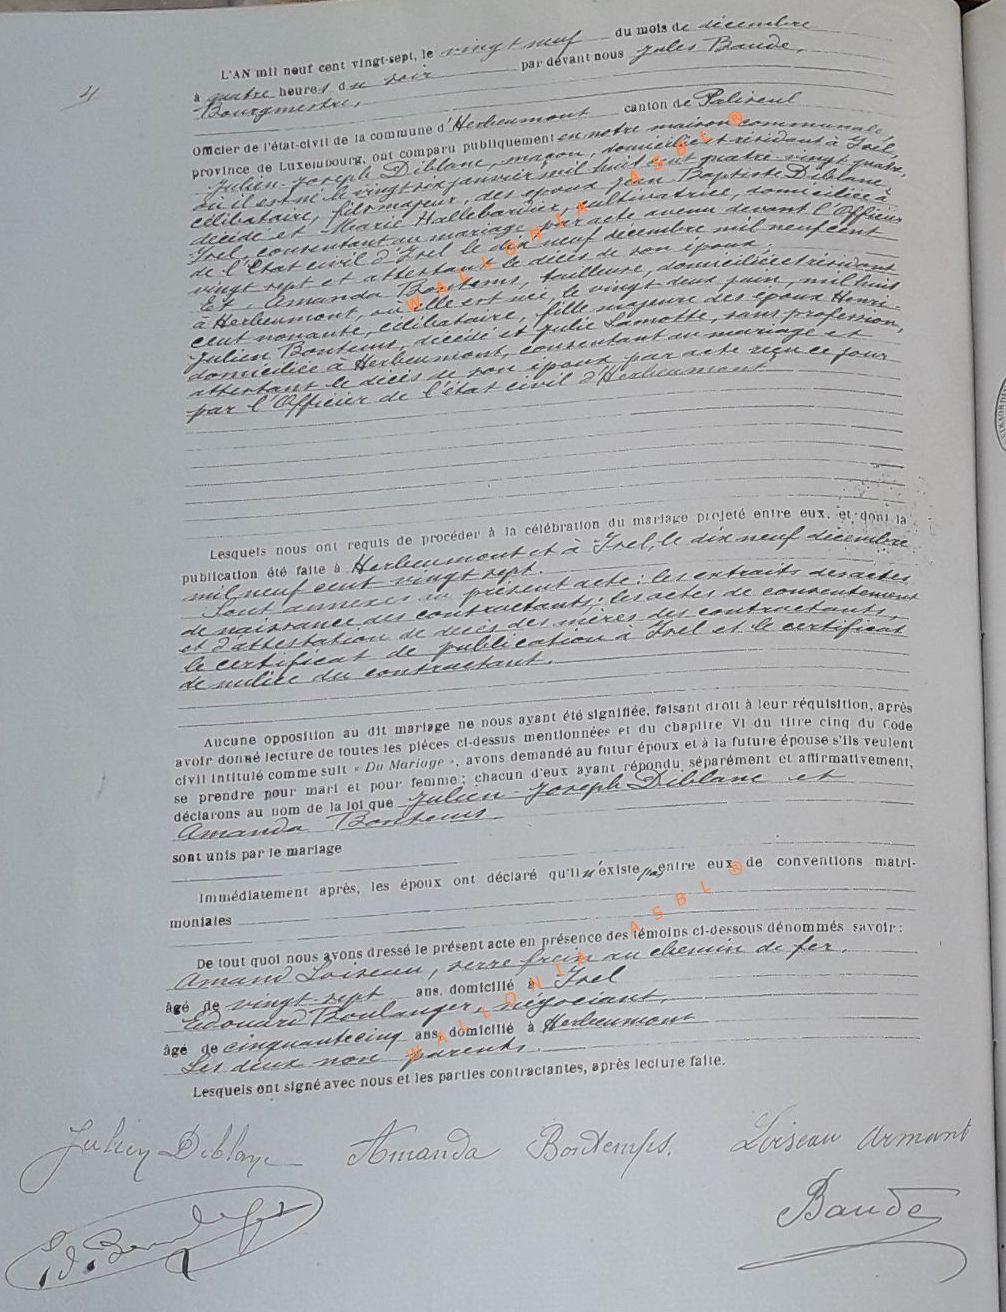 4
L'AN mil neuf cent vingt-sept, le vingt neuf du mois de décembre
à quatre heures du soir par devant nous Jules Baude,
Bourgmestre,
Officier de l'état-civil de la commune d'Herbeumont canton de Paliseul
province de Luxembourg, ont comparu publiquement en notre maison communale,
Julien-Joseph Diblanc, maçon, domicilié et résidant à Izel,
où il est né le vingt six janvier mil huit cent quatre vingt quatre,
célibataire, fils majeur, des époux Jean Baptiste Diblanc,
décédé et Marie Hallebardier, cultivatrice, domiciliée à
Izel, consentant au mariage par acte avenu devant l'Officier
de l'Etat civil d'Izel le dix neuf décembre mil neuf cent
vingt sept et attestant le décès de son époux.
Et, Amanda Bontems, tailleuse, domiciliée et résidant
à Herbeumont, où elle est née, le vingt deux juin, mil huit
cent nonante, célibataire, fille majeure des époux Henri-
Julien Bontems, décédé et Julie Lamotte, sans profession,
domiciliée à Herbeumont, consentant au mariage et
attestant le décès de son époux par acte reçu ce jour
par l'Officier de l'état civil d'Herbeumont
WALLONIA ASBL ®
Lesquels nous ont requis de procéder à la célébration du mariage projeté entre eux, et dont la
publication été faite à Herbeumont et à Izel, le dix neuf décembre
mil neuf cent vingt sept.
Sont annexés au présent acte: les extraits des actes
de naissance des contractants; les actes de consentement
et d'attestation de décès des mères des contractants,
le certificat de publication à Izel et le certificat
de milice du contractant.
Aucune opposition au dit mariage ne nous ayant été signifiée, faisant droit à leur réquisition, après
avoir donné lecture de toutes les pièces ci-dessus mentionnées et du chapitre VI du titre cinq du Code
civil intitulé comme suit « Du Mariage », avons demandé au futur époux et à la future épouse s'ils veulent
se prendre pour mari et pour femme; chacun d'eux ayant répondu séparément et affirmativement,
déclarons au nom de la loi que Julien-Joseph Diblanc et
Amanda Bontems
sont unis par le mariage
Immédiatement après, les époux ont déclaré qu'il n'existe pas entre eux de conventions matri-
moniales
De tout quoi nous avons dressé le présent acte en présence des témoins ci-dessous dénommés savoir:
Amand Loiseau, serre frein au chemin de fer,
âgé de vingt-sept ans, domicilié à Izel
Edouard Boulanger, négociant,
âgé de cinquante cinq ans domicilié à Herbeumont
Les deux non parents.
WALLONIA ASBL ®
Lesquels ont signé avec nous et les parties contractantes, après lecture faite.
Julien Diblanc Amanda Bontemps. Loiseau Armant
Baude